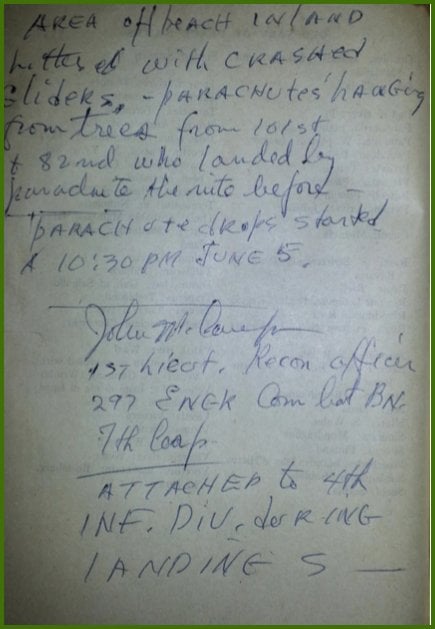 AREA off beach INLAND
littered with CRASHED
gliders, - PARACHUTES hanging
from trees from 101st
& 82nd who landed by
parachute the nite before -
PARACHUTE dROPS started
A 10:30 PM JUNE 5.
John
1st Lieut. Recon officer
297 ENGR Combat BN.
7th Corp.
ATTACHED to 4th
INF. DIV. durING
LANDINGS —